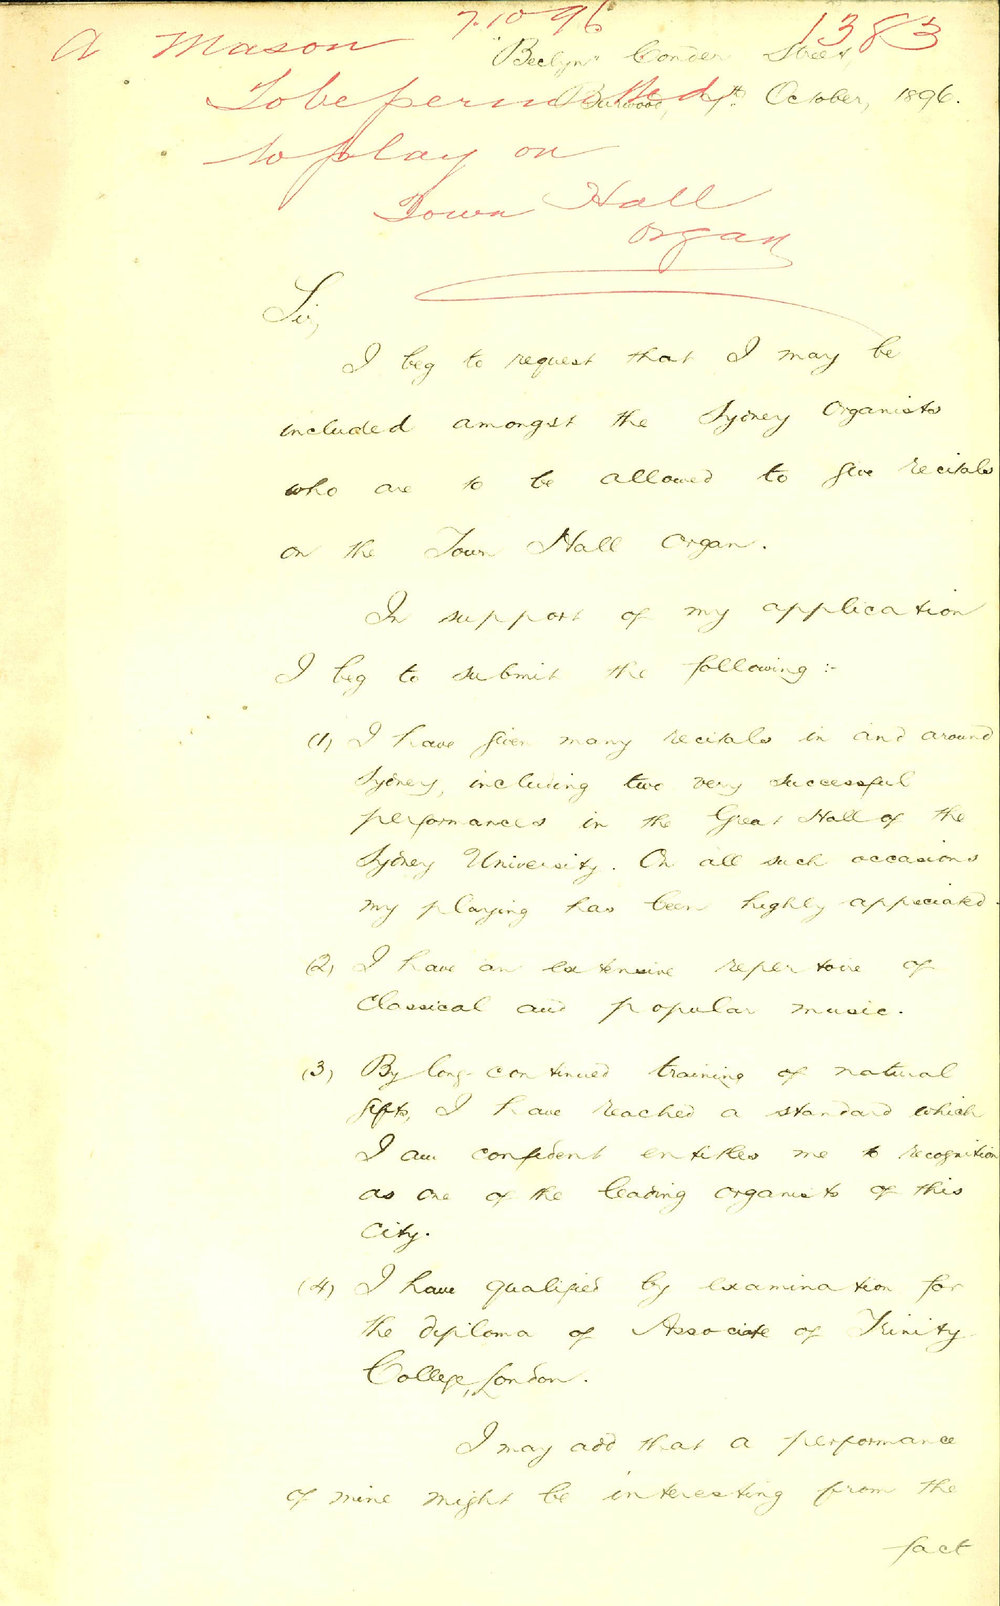 7.10.96
1383
A Mason
"Beclyn" Conder Street,
To be permitted
Burwood, 7th. October, 1896.
to play on
Town Hall
Organ
Sir,
I beg to request that I may be
included amongst the Sydney Organists
who are to be allowed to give recitals
on the Town Hall Organ.
In support of my application
I beg to submit the following :-
(1) I have given many recitals in and around
Sydney, including two very successful
performances in the Great Hall of the
Sydney University. On all such occasions
my playing has been highly appreciated.
(2) I have an extensive repertoire of
Classical and popular music.
(3) By long-continued training of natural
gifts, I have reached a standard which
I am confident entitles me to recognition
as one of the leading organists of this
City.
(4) I have qualified by examination for
the diploma of Associate of Trinity
College, London.
I may add that a performance
of mine might be interesting from the
fact